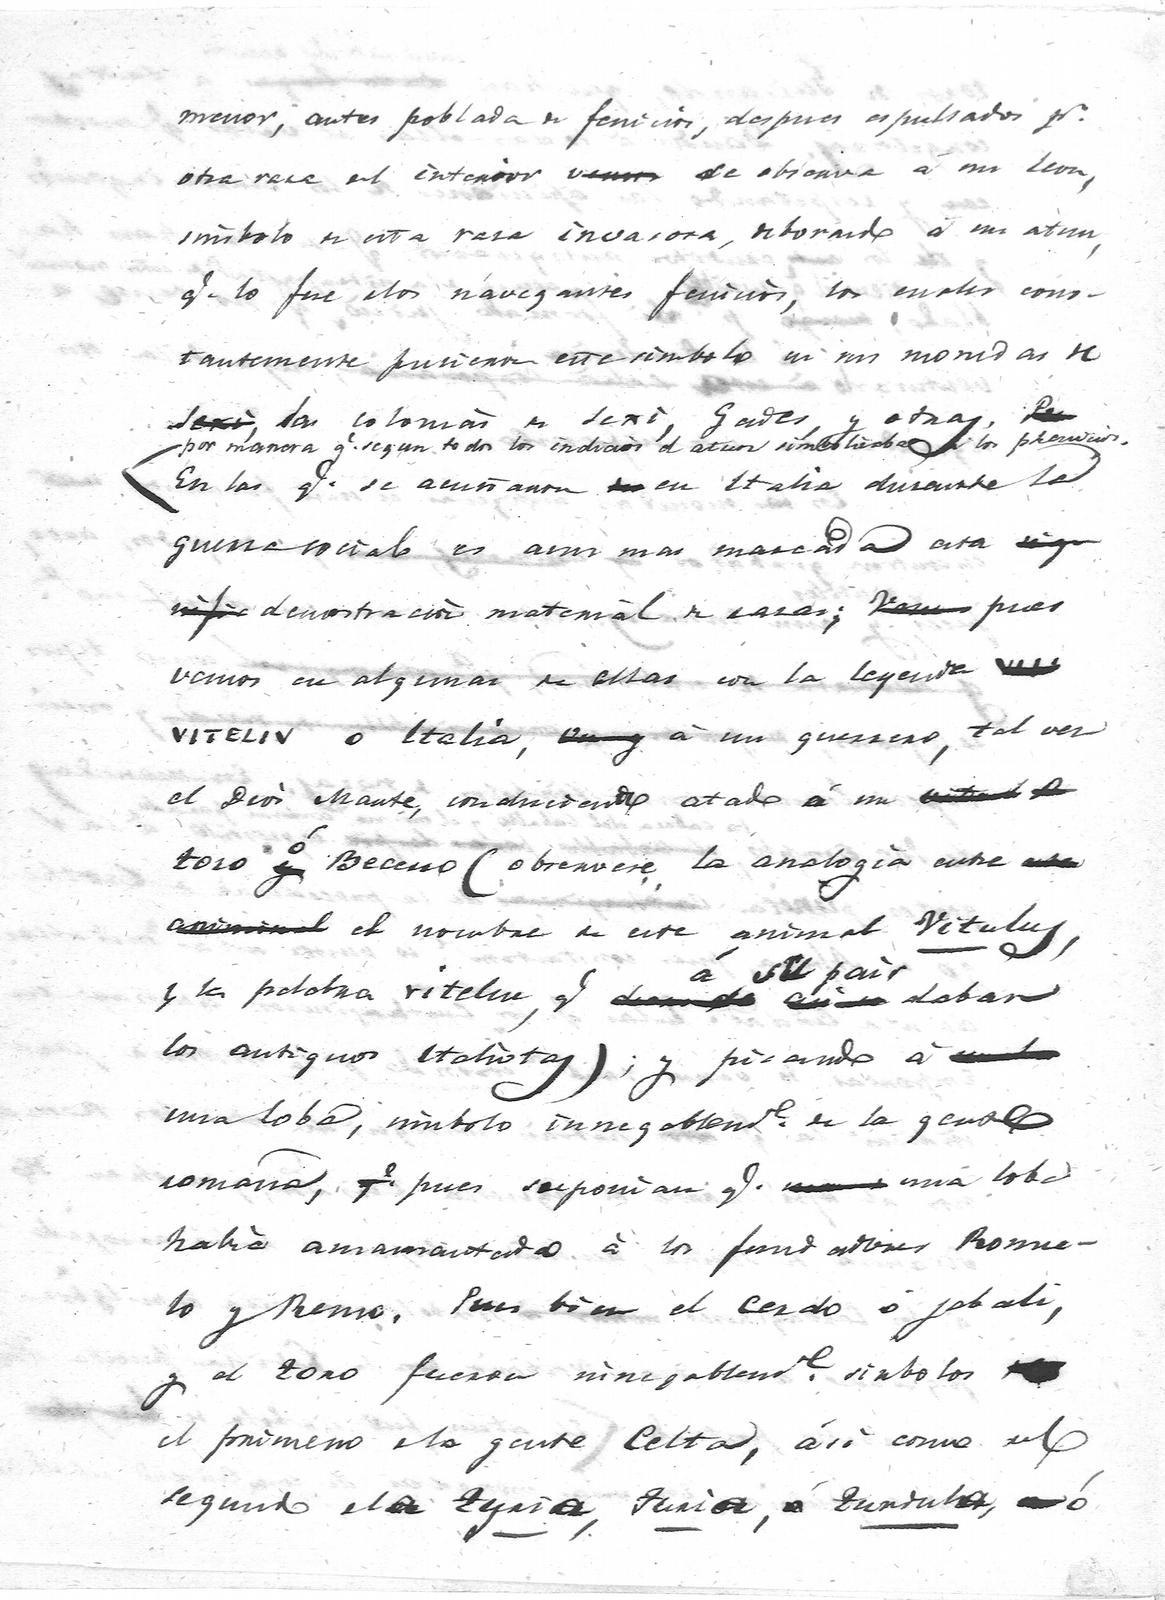 menor, antes poblada de fenicios, despues espulsados pr.
otra raza del interior vemos se observa á un leon,
simbolo de esta raza invasora, deborando á un atun,
q.e lo fue de los návegantes fenicios, los cuales cons-
tantemente pusieron este simbolo en sus monedas de
Sexi, las colonias de Sexi, Gades, y otras. Pe
por manera q.e segun todos los indicios el atun simbolizaba á los phenicios.
En las q.e se acuñaron en Italia durante la
guerra social es aun mas marcada esta sig-
nific demostracion material de razas; Vemos pues
vemos en algunas de ellas con la leyenda
VITELIV o Italia, á un guerrero, tal vez
el Dios Marte, conduciendo atado á un
toro ó Becerro (observese, la analogía entre este
animal el nombre de este animal Vitulus,
á su pais
y la palabra viteliu, q.e daban
los antiguos Italiotas); y picando á
una loba, simbolo innegablem.te de la gente
romana, pues suponian q.e una loba
habia amamantado á los fundadores Romu-
lo y Remo. Pues bien el cerdo ó jabali,
y el toro fueron innegablem.te simbolos
el primero de la gente Celta, ási como el
segundo de la Tyria, Turia, ó Turdula, ó